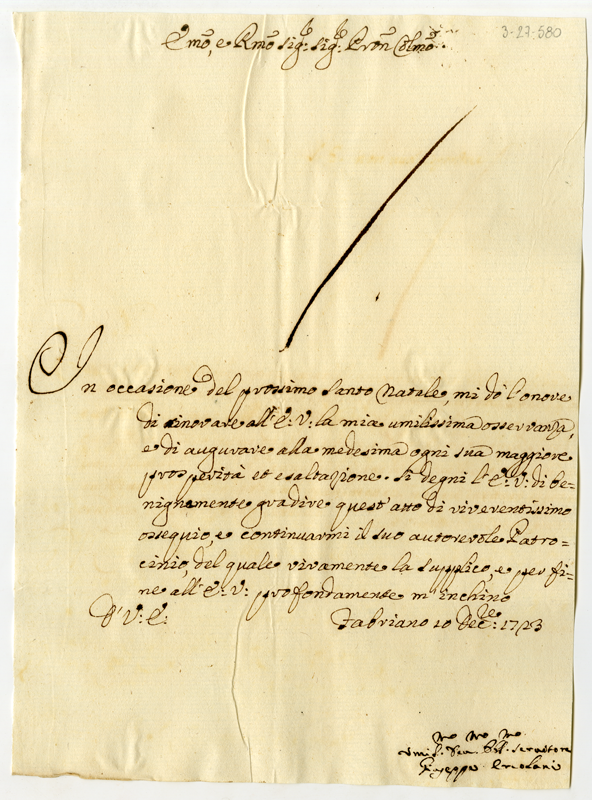 3-27-580
Emo, e Rmo Sig:e Sig:e Pron Colmo
In occasione del prossimo Santo Natale mi dò l'onore
di rinovare all'E: V: la mia umilissima osservanza,
e di augurare alla medesima ogni sua maggiore
prosperità et esaltazione. Si degni l'E: V: di be=
nignamente gradire quest'atto di riverentissimo
ossequio, e continuarmi il suo autorevole Patro=
cinio, del quale vivamente la supplico, e per fi=
ne all'E: V: profondamente m'inchino
D' V: E:
Fabriano 10 Dec:re 1723
Umil. Dev. Obl. Servitore
Giuseppe Ercolani